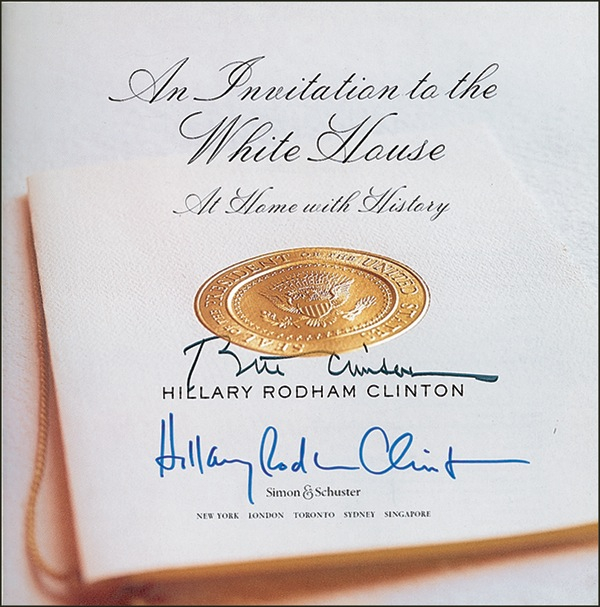 An Invitation to the
White House
At Home with History
SEAL OF THE PRESIDENT OF THE UNITED STATES
Bill Clinton
HILLARY RODHAM CLINTON
Hillary Rodham Clinton
Simon & Schuster
NEW YORK LONDON TORONTO SYDNEY SINGAPORE